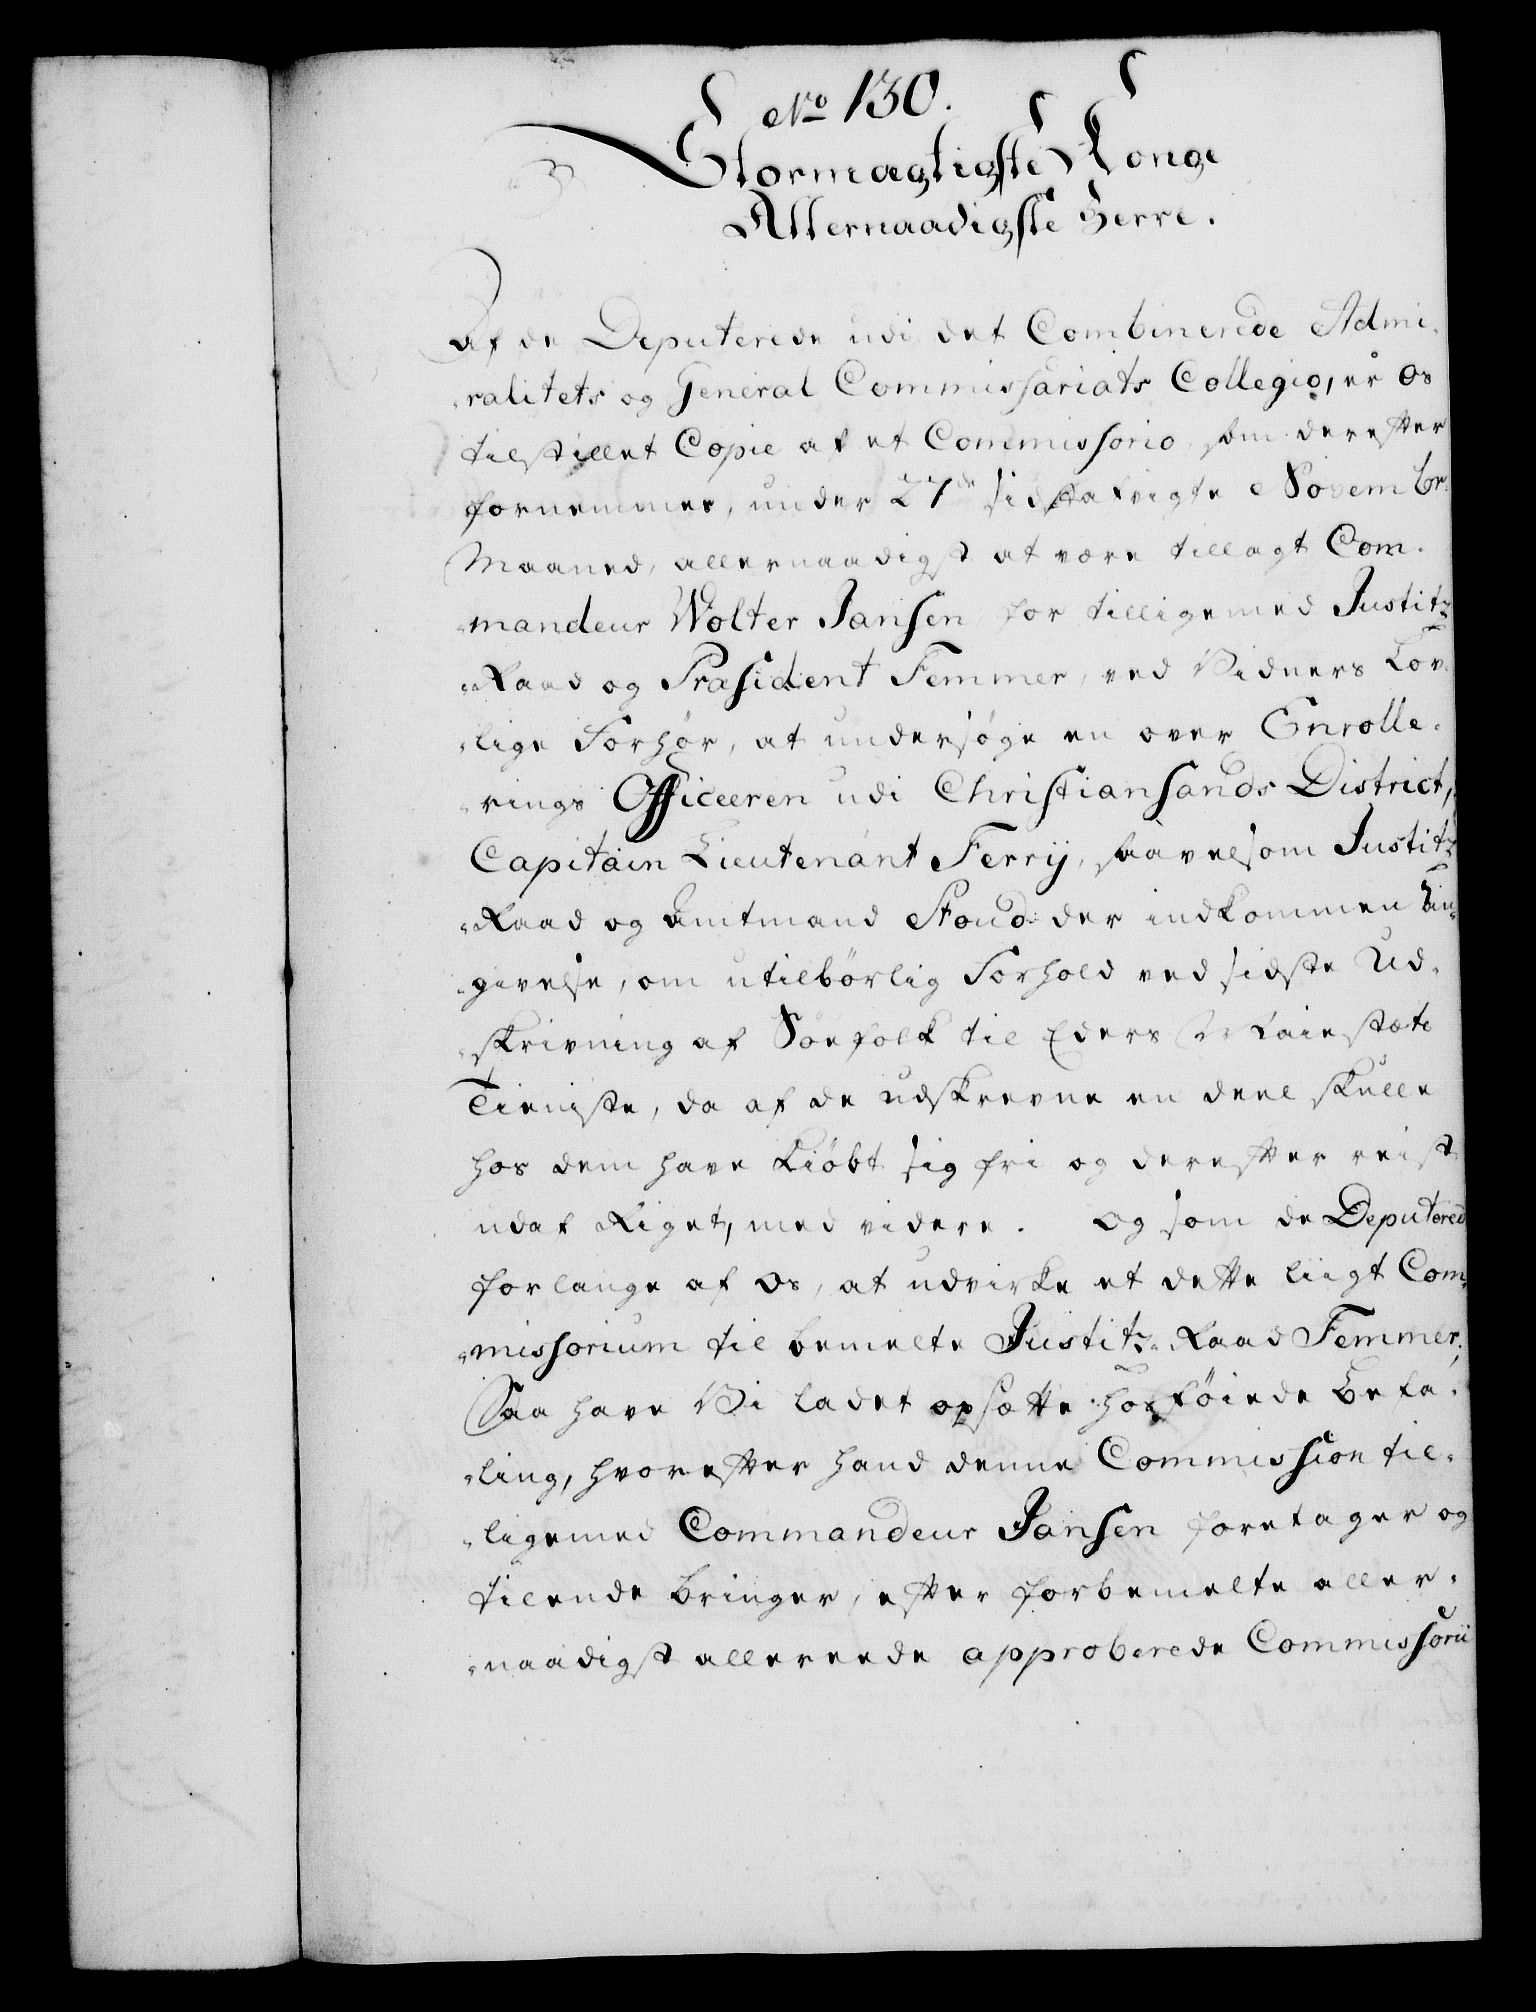 No 130.
Stormægtigste Konge
Allernaadigste Herre.
Af de Deputerede udi det Combinerede Admi-
-ralitets og General Commissariats Collegio, er os
tilstillet Copie af et Commissorio, som derefter
fornemmes, under 27de sidstafvigte Novembr:
Maaned, allernaadigst at være tillagt Com-
-mandeur Wolter Jansen, for tilligemed Justitz-
-Raad og Præsident Femmer, ved Vidners Lov-
-lige Forhør, at undersøge en over Enrolle-
-rings Officeeren udi Christiansands District,
Capitain Lieutenant Ferrij, saavelsom Justitz-
-Raad og Amtmand Stoud der indkommen An-
-givelse, om utilbörlig Forhold ved sidste Ud-
-skrivning af Söefolk til Eders Maiestæts
Tieniste, da af de udskrevne en deel skulle
hos dem have kiöbt sig fri og derefter reist
udaf Riget, med videre. Og som de Deputerede
forlange af os, at udvirke et dette liigt Com-
-missorium til bemelte Justitz-Raad Femmer;
Saa have Vi ladet opsætte hosföiede Befa-
-ling, hvorefter hand denne Commission til-
-ligemed Commandeur Jansen foretager og
tilende bringer, efter forbemelte aller-
-naadigst allereede approberede Commissorii